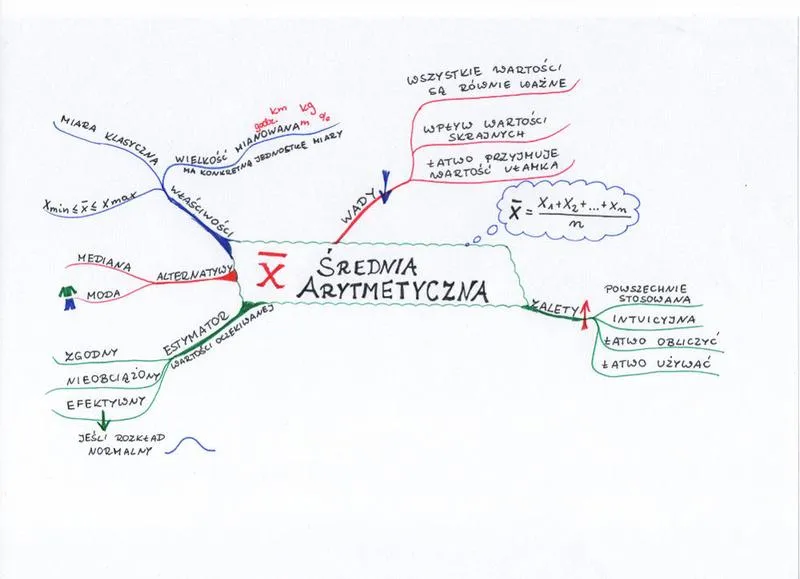 x̄ ŚREDNIA
ARYTMETYCZNA
x̄ = x₁+x₂+...+xₙ
n
WADY
WSZYSTKIE WARTOŚCI
SĄ RÓWNIE WAŻNE
WPŁYW WARTOŚCI
SKRAJNYCH
ŁATWO PRZYJMUJE
WARTOŚĆ UŁAMKA
ZALETY
POWSZECHNIE
STOSOWANA
INTUICYJNA
ŁATWO OBLICZYĆ
ŁATWO UŻYWAĆ
WŁAŚCIWOŚCI
MIARA KLASYCZNA
WIELKOŚĆ MIANOWANA
km kg
godz. m %
MA KONKRETNĄ JEDNOSTKĘ MIARY
Xmin ≤ x̄ ≤ Xmax
ALTERNATYWY
MEDIANA
MODA
ESTYMATOR
WARTOŚCI OCZEKIWANEJ
ZGODNY
NIEOBCIĄŻONY
EFEKTYWNY
JEŚLI ROZKŁAD
NORMALNY